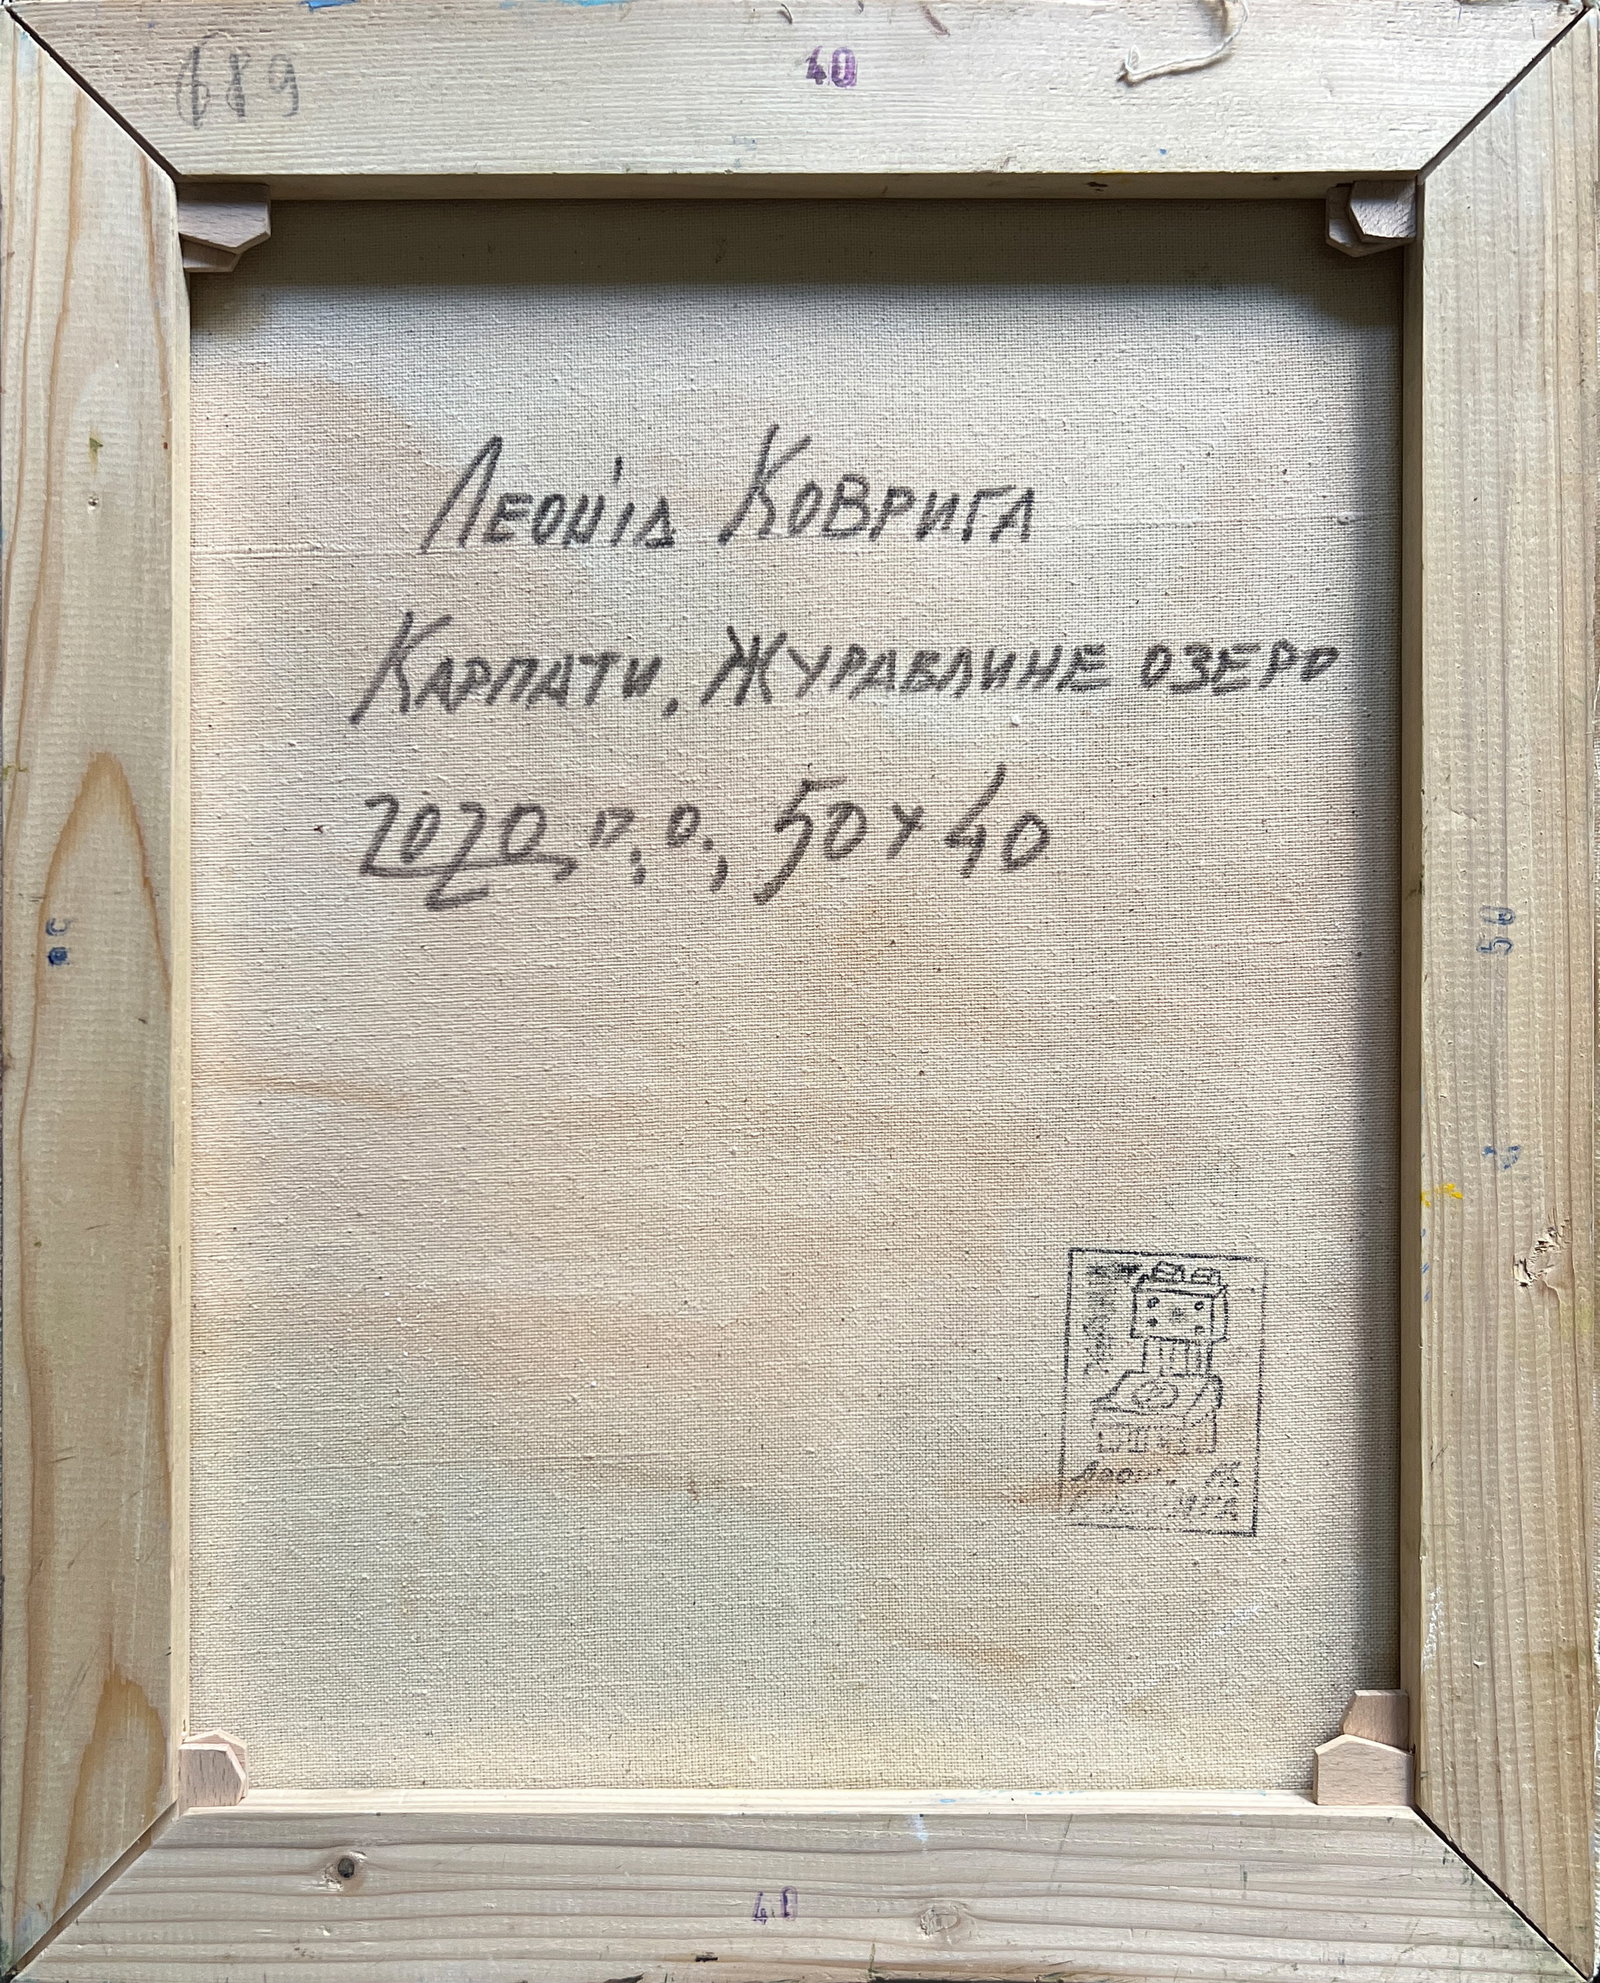 689
40
Леонід Коврига
Карпати. Журавлине озеро
2020 п.о., 50х40
50
40